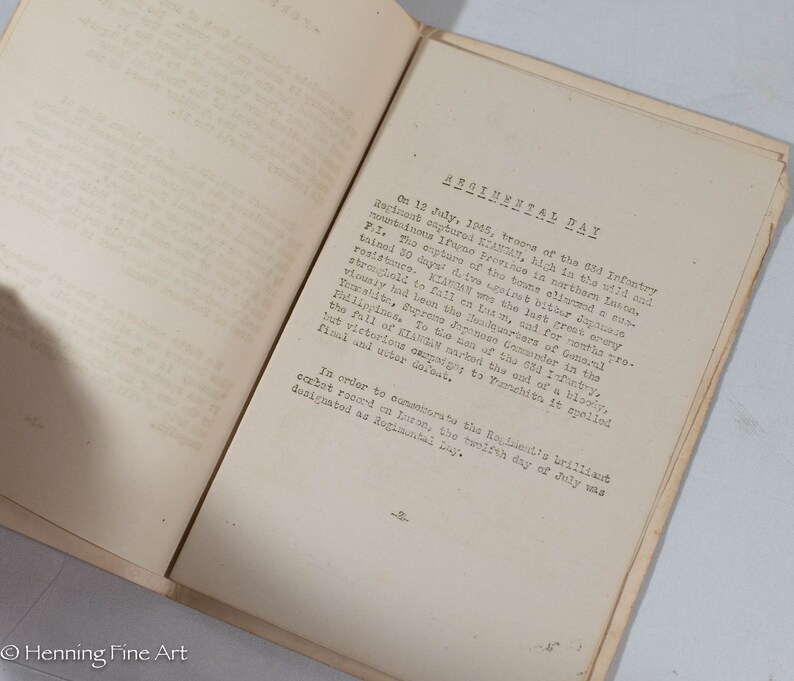 REGIMENTAL DAY
On 12 July, 1945, troops of the 63d Infantry
Regiment captured KIANGAN, high in the wild and
mountainous Ifugao Province in northern Luzon,
P.I. The capture of the towns climaxed a sus-
tained 30 days' drive against bitter Japanese
resistance. KIANGAN was the last great enemy
stronghold to fall on Luzon, and for months pre-
viously had been the Headquarters of General
Yamashita, Supreme Japanese Commander in the
Philippines. To the men of the 63d Infantry,
the fall of KIANGAN marked the end of a bloody,
but victorious campaign; to Yamashita it spelled
final and utter defeat.
In order to commemorate the Regiment's brilliant
combat record on Luzon, the twelfth day of July was
designated as Regimental Day.
-2-
© Henning Fine Art